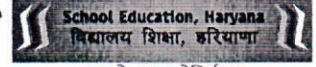 School Education, Haryana
विद्यालय शिक्षा, हरियाणा